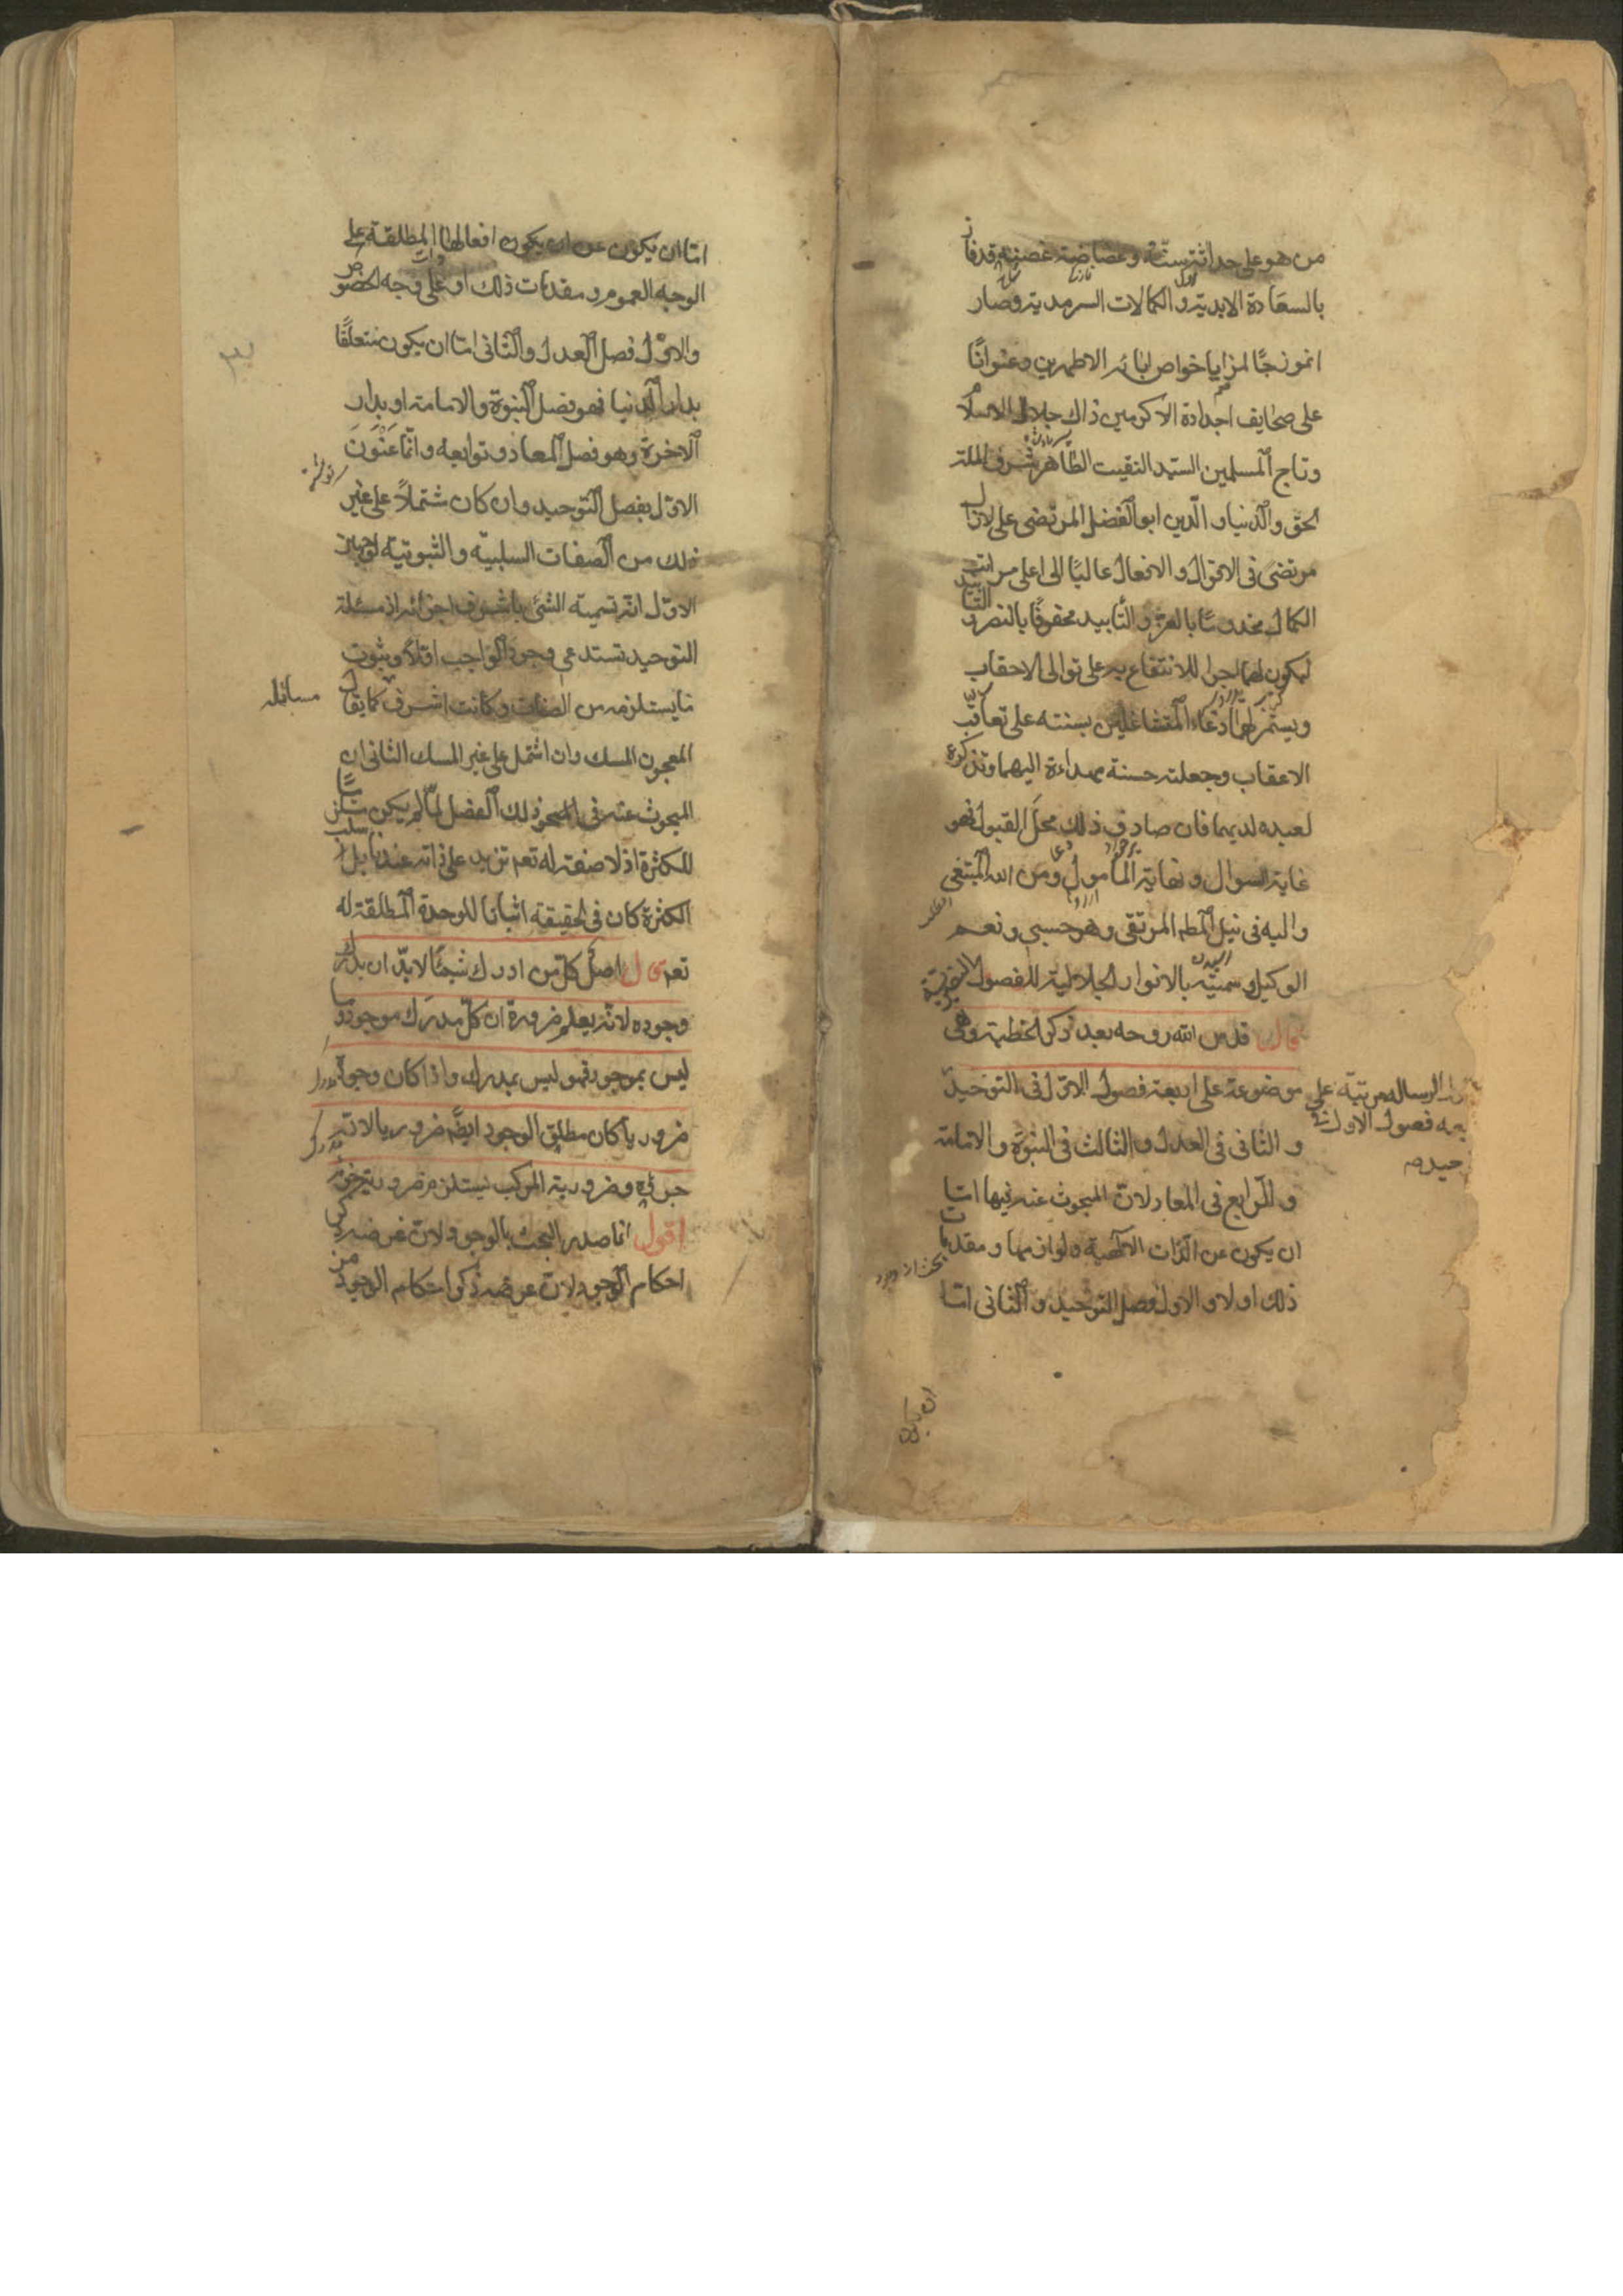 من هو على حداثة سنه وغضاضة غصنه قد فاز
بالسعادة الابدية و الكمالات السرمدية وصار
انموزجًا لمزايا خواص ابائه الاطهرين وعنوانًا
على صحايف اجدادة الاكرمين ذاك جلال الاسلام
وتاج المسلمين السيد النقيب الطاهر شرف الملة
الحق والدنيا و الدين ابو الفضل المرتضى على لازال
مرتضى فى الاقوال و الافعال عاليًا الى اعلى مراتب
الكمال بالعز و التأييد محفوفًا بالنصر و
ليكون لهما اجرا للانتفاع به على توالى الاحقاب
ويستمر لهما دعاء المتشاغلين بسننه على تعاقب
الاعقاب وجعلته حسنة مهداءة اليهما وتذكرة
لعبده لديهما فان صادف ذلك محل القبول فهو
غاية السوال و نهاية المأمول ومن الله المبتغى
واليه فى نيل المطلم المرتقى وهو حسبى ونعم
الوكيل وسميته بالانوار الجلالية للفصول النصيرية
قال قدس الله روحه بعد ذكر الخطبة وهى
موضوعة على اربعة فصول الاول فى التوحيد
الرساله مرتبة على
فصول الاول
و الثانى فى العدل و الثالث فى النبوة و الامامة
و الرابع فى المعاد لان المبحوث عنه فيها اما
ان يكون عن الذات الالهية و لوازمها و مقدمات
ذلك اولا و الاول فصل التوحيد و الثانى اما
ان يكون
اما ان يكون عن ان يكون افعالها المطلقة على
الوجه العموم و مقدمات ذلك او على وجه الخصوص
والاول فصل العدل والثانى اما ان يكون متعلقًا
بدار الدنيا فهو فصل النبوة والامامة او بدار
الاخرة وهو فصل المعاد وتوابعه وانما عَنْوَنَ
الاول بفصل التوحيد وان كان مشتملاً على غير
ذلك من الصفات السلبية و الثبوتية لوجهين
الاول انه تسمية الشئ باشرف اجزائه اذ مسئلة
التوحيد تستدعى وجود الواجب اولاً وثبوت
مايستلزمه من الصفات وكانت اشرف كما يقال
مسائله
المعجون المسك وان اشتمل على غير المسك الثانى ان
المبحوث عنه فى ذلك الفصل لما لم يكن مستلزمًا
للكثرة اذ لا صفة له تعم تزيد على ذاته عندنا بل سلب
الكثرة كان فى الحقيقة اثباتا للوحدة المطلقة له
تعم قال اصل كل من ادرك شيئًا لابد ان يدرك
وجوده لانه يعلم ضرورة ان كل مدرك موجود وما
ليس بموجود فهو ليس بمدرك واذا كان وجوده
ضروريا كان مطلق الوجود ايضًا ضروريا لانه
جزئه وضرورية المركب يستلزم ضرورية جزئه
اقول انما صدر البحث بالوجود لان غرضه ذكر
احكام الوجود لان غرضه ذكر احكام الوجود من